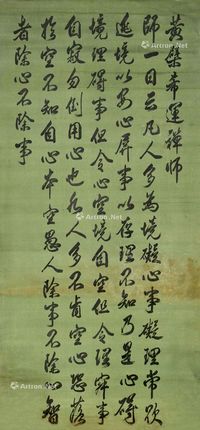 黃檗希運禪師
師一日云凡人多為境礙心事礙理常欲
逃境以安心屏事以存理不知乃是心礙
境理礙事但令心空境自空但令理寂事
自寂勿倒用心也凡人多不肯空心恐落
於空不知自心本空愚人除事不除心智
者除心不除事
Artron.Net
Artron.Net
Artron.Net
Artron.Net